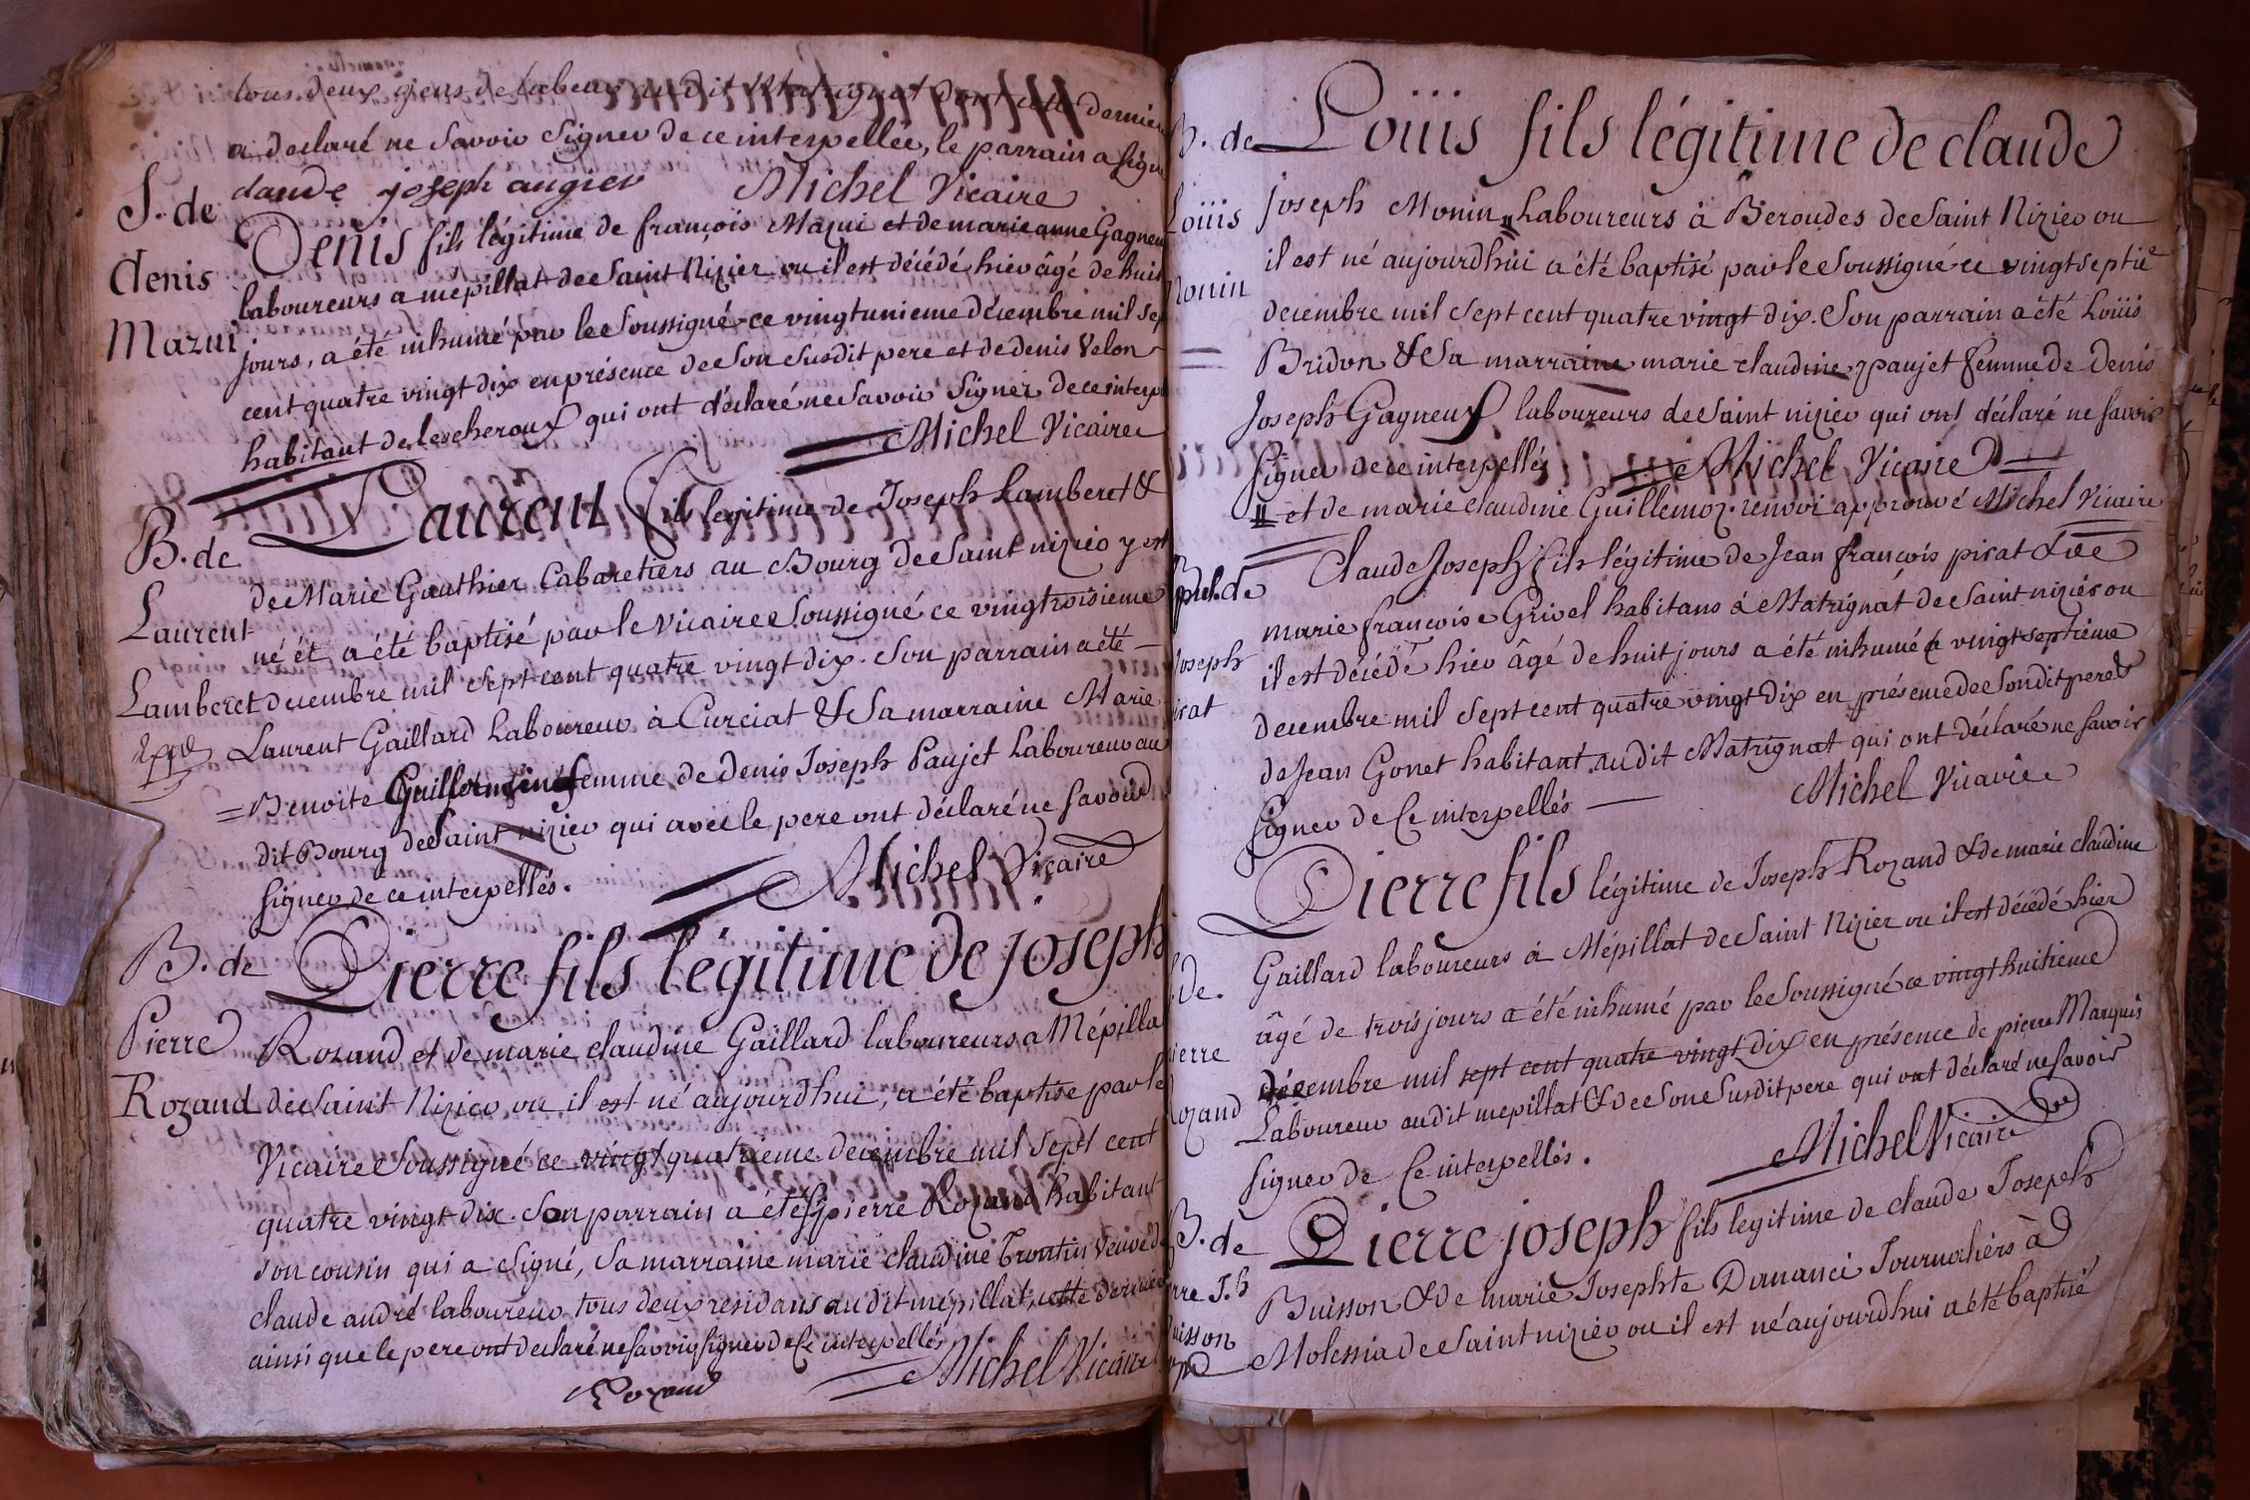 tous deux gens de labeur audit Matrignat dont cette derniere
a declaré ne savoir signer de ce interpellée, le parrain a signé
claude joseph augier Michel Vicaire
S. de
denis
Mazui
Denis fils légitime de françois Mazui et de marie anne Gagneu
laboureurs a mépillat de Saint Nizier ou il est décédé hier âgé de huit
jours, a été inhumé par le Soussigné ce vingtunieme décembre mil sep
cent quatre vingt dix en présence de Son Susdit pere et de denis Velon
habitant de lescheroux qui ont déclaré ne Savoir Signer de ce interp
Michel Vicaire
B. de
Laurent
Lamberet
Laurent fils legitime de Joseph Lamberet &
de Marie Gauthier Cabaretiers au Bourg de Saint nizier y est
né et a été baptisé par le Vicaire Soussigné ce vingtroisieme
decembre mil sept cent quatre vingt dix. Son parrain a été
Laurent Gaillard Laboureur à Curciat & Sa marraine Marie
Benoite femme de Denis Joseph Paujet Laboureur au
dit Bourg de Saint nizier qui avec le pere ont déclaré ne Savoir
signer de ce interpellés.
Michel Vicaire
B. de
Pierre
Rozand
Pierre fils légitime de joseph
Rozand et de marie claudine Gaillard laboureurs a Mépilla
de Saint Nizier ou il est né aujourdhui, a été baptisé par le
Vicaire Soussigné ce vingt quatrieme decembre mil sept cent
quatre vingt dix. Son parrain a été pierre Rozand habitant
son cousin qui a signé, sa marraine marie claudine Trontin veuve de
claude andré laboureur tous deux residans audit mépillat, cette derniere
ainsi que le pere ont declaré ne Savoir signer de Ce interpellés
Rozand Michel Vicaire
B. de
Loüis
Monin
Loüis fils légitime de claude
joseph Monin || Laboureurs à Béroudes de Saint Nizier ou
il est né aujourdhui a été baptisé par le Soussigné ce vingt septie
decembre mil sept cent quatre vingt dix. Son parrain a été Loüis
Bridon & Sa marraine marie claudine paujet femme de Denis
Joseph Gagneux laboureurs de Saint nizier qui ont déclaré ne savoir
signer de ce interpellés Michel Vicaire
|| et de marie claudine Guillemoz. renvoi approuvé Michel Vicaire
Joseph
irat
Claude Joseph fils légitime de Jean françois pirat & de
marie françoise Grivel habitans à Matrignat de Saint nizier ou
il est décédé hier âgé de huit jours a été inhumé ce vingt septieme
decembre mil Sept cent quatre vingt Dix en présence de Son dit pere &
de Jean Gonet habitant audit Matrignat qui ont déclaré ne savoir
signer de Ce interpellés Michel Vicaire
de.
ierre
ozand
Pierre fils légitime de Joseph Rozand & de marie claudine
Gaillard laboureurs à Mépillat de Saint Nizier ou il est décédé hier
âgé de trois jours a été inhumé par le Soussigné ce vingt huitieme
décembre mil sept cent quatre vingt Dix en présence de pierre Marquis
Laboureur audit mepillat & de Son Susdit pere qui ont déclaré ne Savoir
signer de Ce interpellés.
Michel Vicaire
B. de
rre J.h
uisson
Pierre joseph fils legitime de claude Joseph
Buisson & de marie Josephte Dananci Journaliers à
Molessia de Saint nizier ou il est né aujourdhui a été baptisé